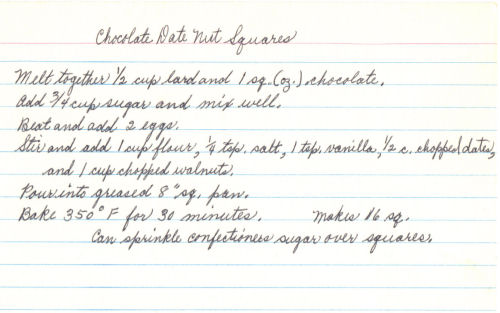 Chocolate Date Nut Squares
Melt together 1/2 cup lard and 1 sq. (oz.) chocolate.
Add 3/4 cup sugar and mix well.
Beat and add 2 eggs.
Stir and add 1 cup flour, 1/4 tsp. salt, 1 tsp. vanilla, 1/2 c. chopped dates,
and 1 cup chopped walnuts.
Pour into greased 8" sq. pan.
Bake 350° F for 30 minutes. Makes 16 sq.
Can sprinkle confectioners sugar over squares.